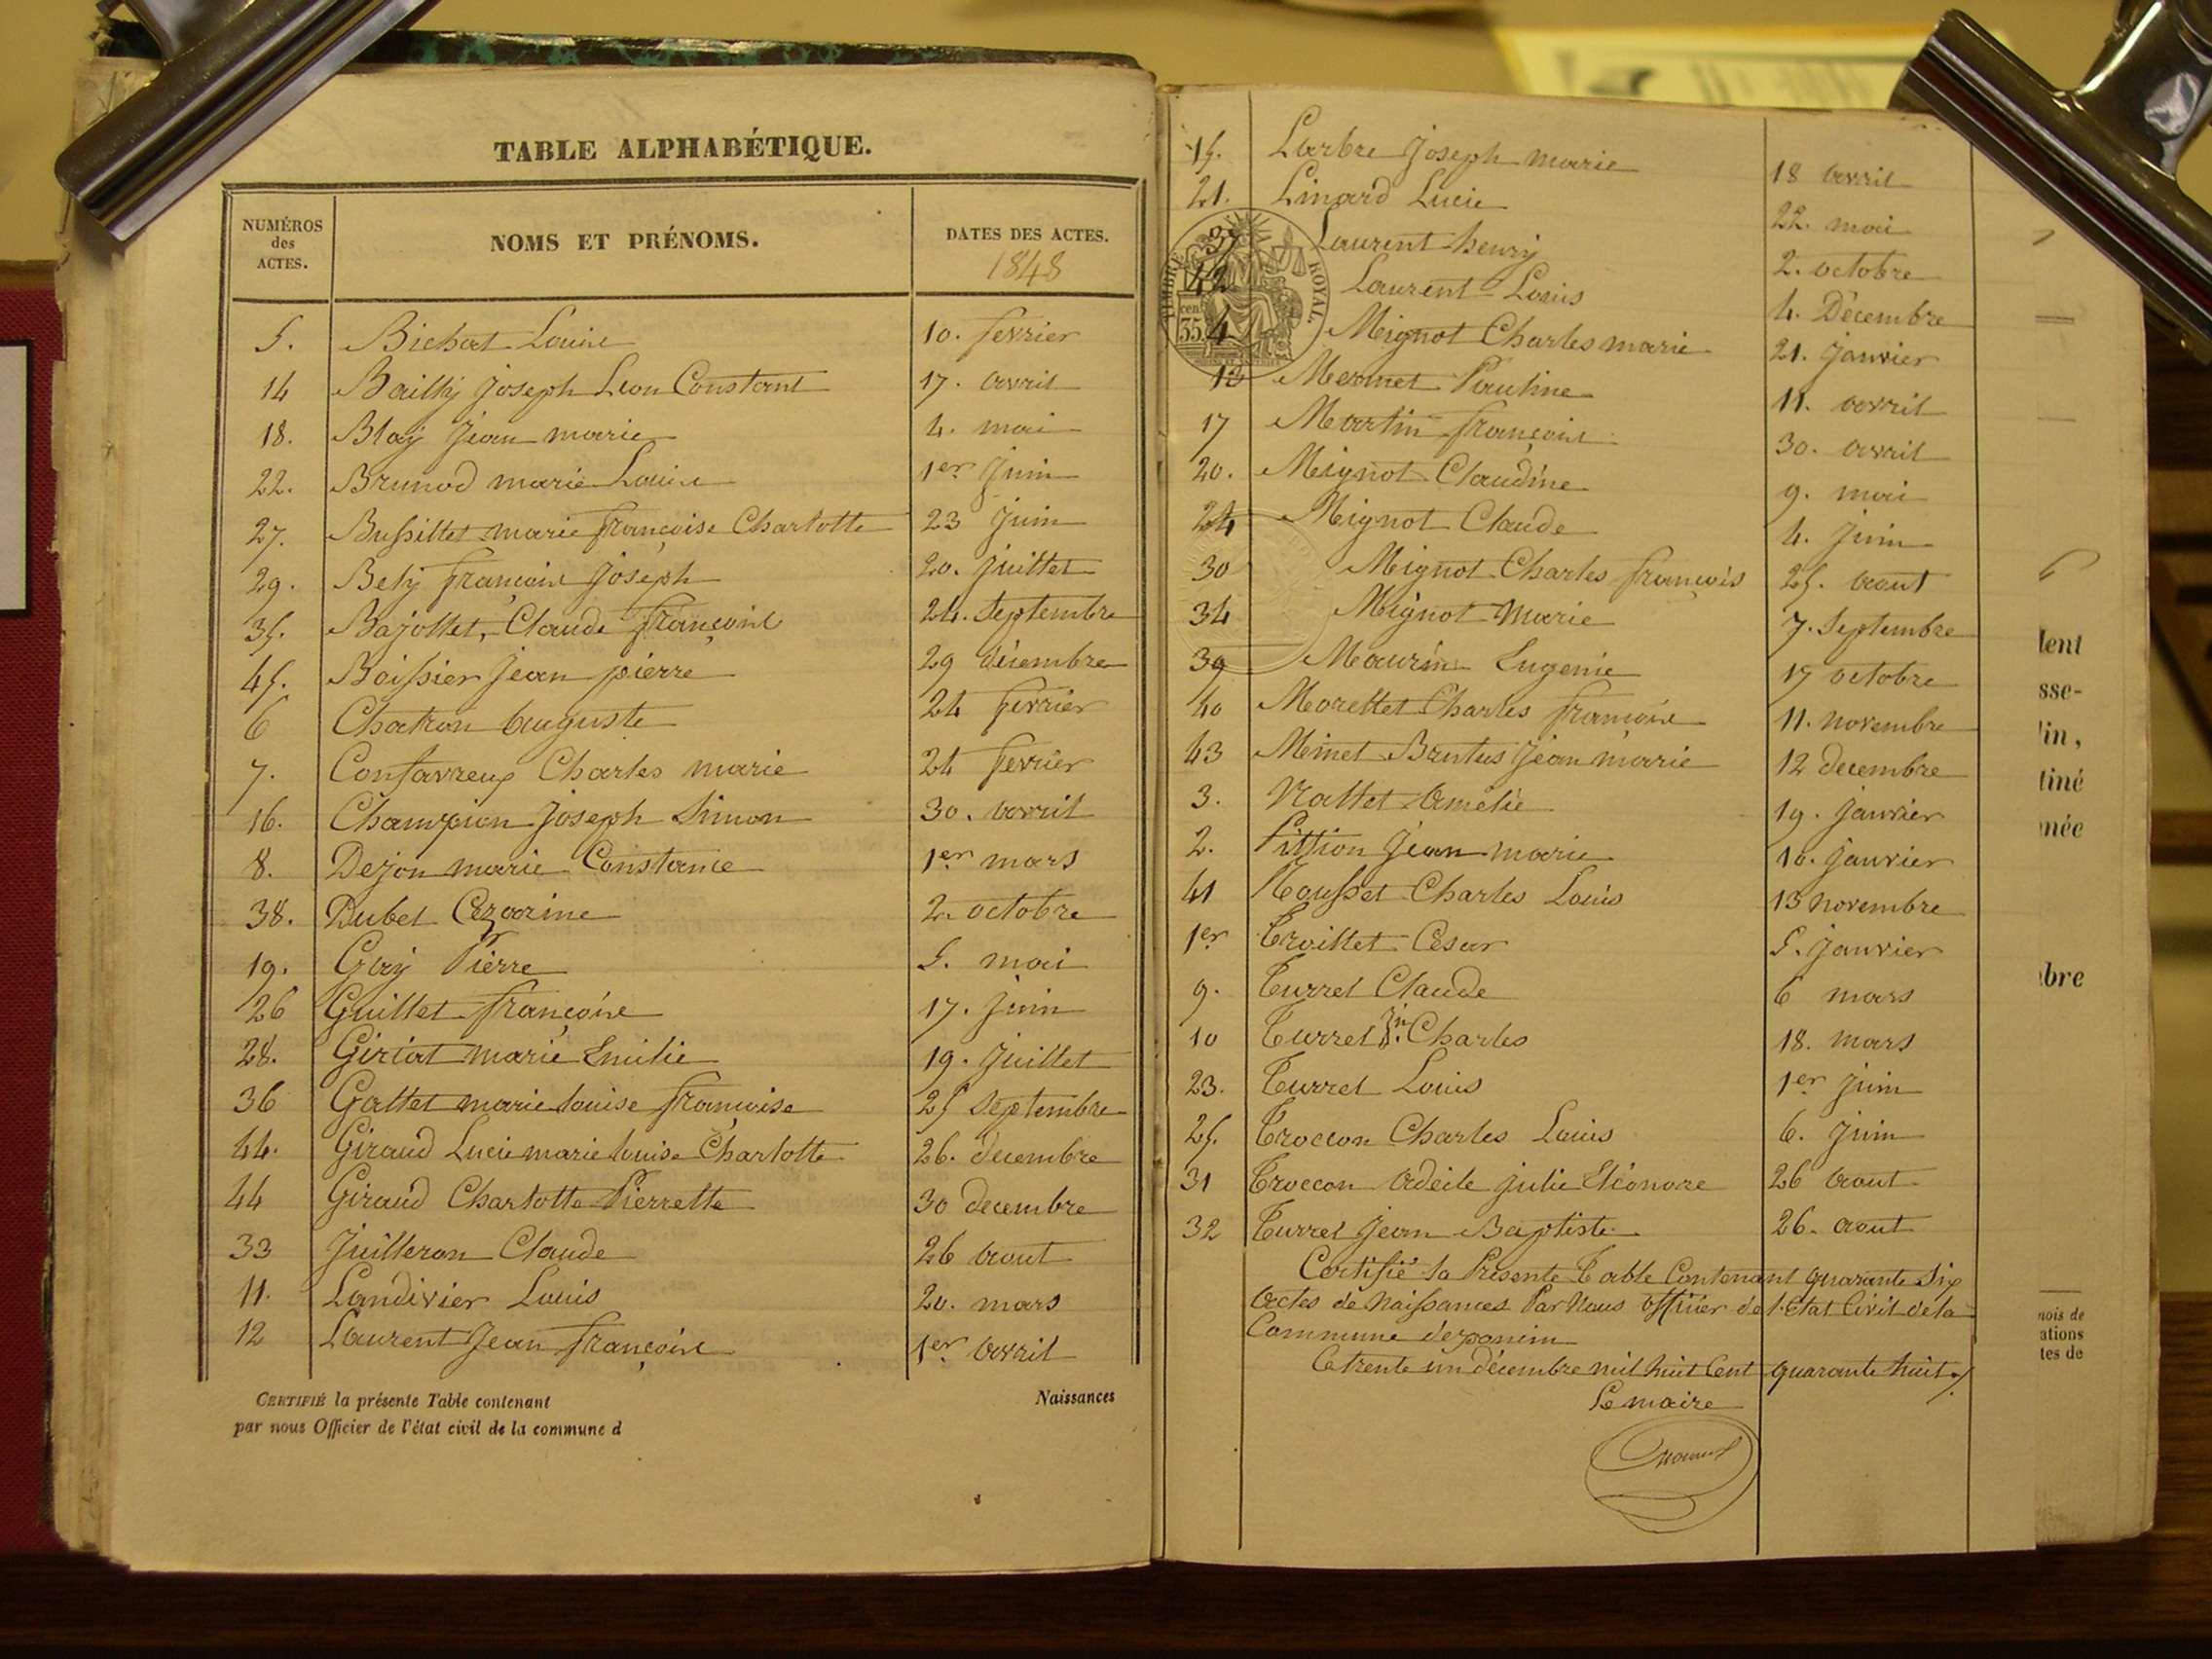 TABLE ALPHABÉTIQUE.
NUMÉROS des ACTES. NOMS ET PRÉNOMS. DATES DES ACTES. 1848
5. Bichat Louise 10. fevrier
14 Bailly joseph Leon Constant 17. avril
18. Blay Jean marie 4. mai
22. Brunod marie Louise 1er juin
27. Bussillet marie françoise Charlotte 23 juin
29. Bely françois joseph 20. juillet
35. Bajollet, Claude françois 24. Septembre
45. Boissier jean pierre 29 décembre
6 Chatron auguste 24 fevrier
7. Confavreux Charles marie 24 fevrier
16. Champion joseph Simon 30. avril
8. Dejon marie Constance 1er mars
38. Dubet Cezarine 2. octobre
19. Gay Pierre 5. mai
26 Guillet françoise 17. juin
28. Giriat marie Emilie 19. juillet
36 Gallet marie louise françoise 25 Septembre
44. Giraud Lucie marie louise Charlotte 26. decembre
44 Giraud Charlotte Pierrette 30 decembre
33 Juilleron Claude 26 aout
11. Landivier Louis 20. mars
12 Laurent Jean françois 1er avril
CERTIFIÉ la présente Table contenant Naissances
par nous Officier de l'état civil de la commune d
15. Larbre Joseph marie 18 avril
21. Linard Lucie 22. mai
37 Laurent henry 2. octobre
42 Laurent Louis 4. Décembre
4 Mignot Charles marie 21. janvier
13 Mermet Pauline 11. avril
17 Martin françois 30. avril
20. Mignot Claudine 9. mai
24 Mignot Claude 4. juin
30 Mignot Charles françois 25. aout
34 Mignot Marie 7. Septembre
39 Maurin Eugenie 17 octobre
40 Morellet Charles françois 11. novembre
43 Minet Brutus Jean marie 12 decembre
3. Nallet Amelie 19. janvier
2. Pittion Jean marie 10. janvier
41 Rousset Charles Louis 13 novembre
1er Troillet César 5. janvier
9. Turrel Claude 6 mars
10 Turrel Jn. Charles 18. mars
23. Turrel Louis 1er juin
25. Troccon Charles Louis 6. juin
31 Troccon Adeile julie Eléonore 26 aout
32 Turrel jean Baptiste 26. aout
Certifié la Présente Table Contenant quarante Six
actes de Naissances Par Nous officier de l'Etat Civil de la
Commune d'
Ce trente un décembre mil huit Cent quarante huit./.
Le maire
TIMBRE ROYAL.
35 cen
lent
sse-
lin,
tiné
mée
bre
mois de
ations
tes de